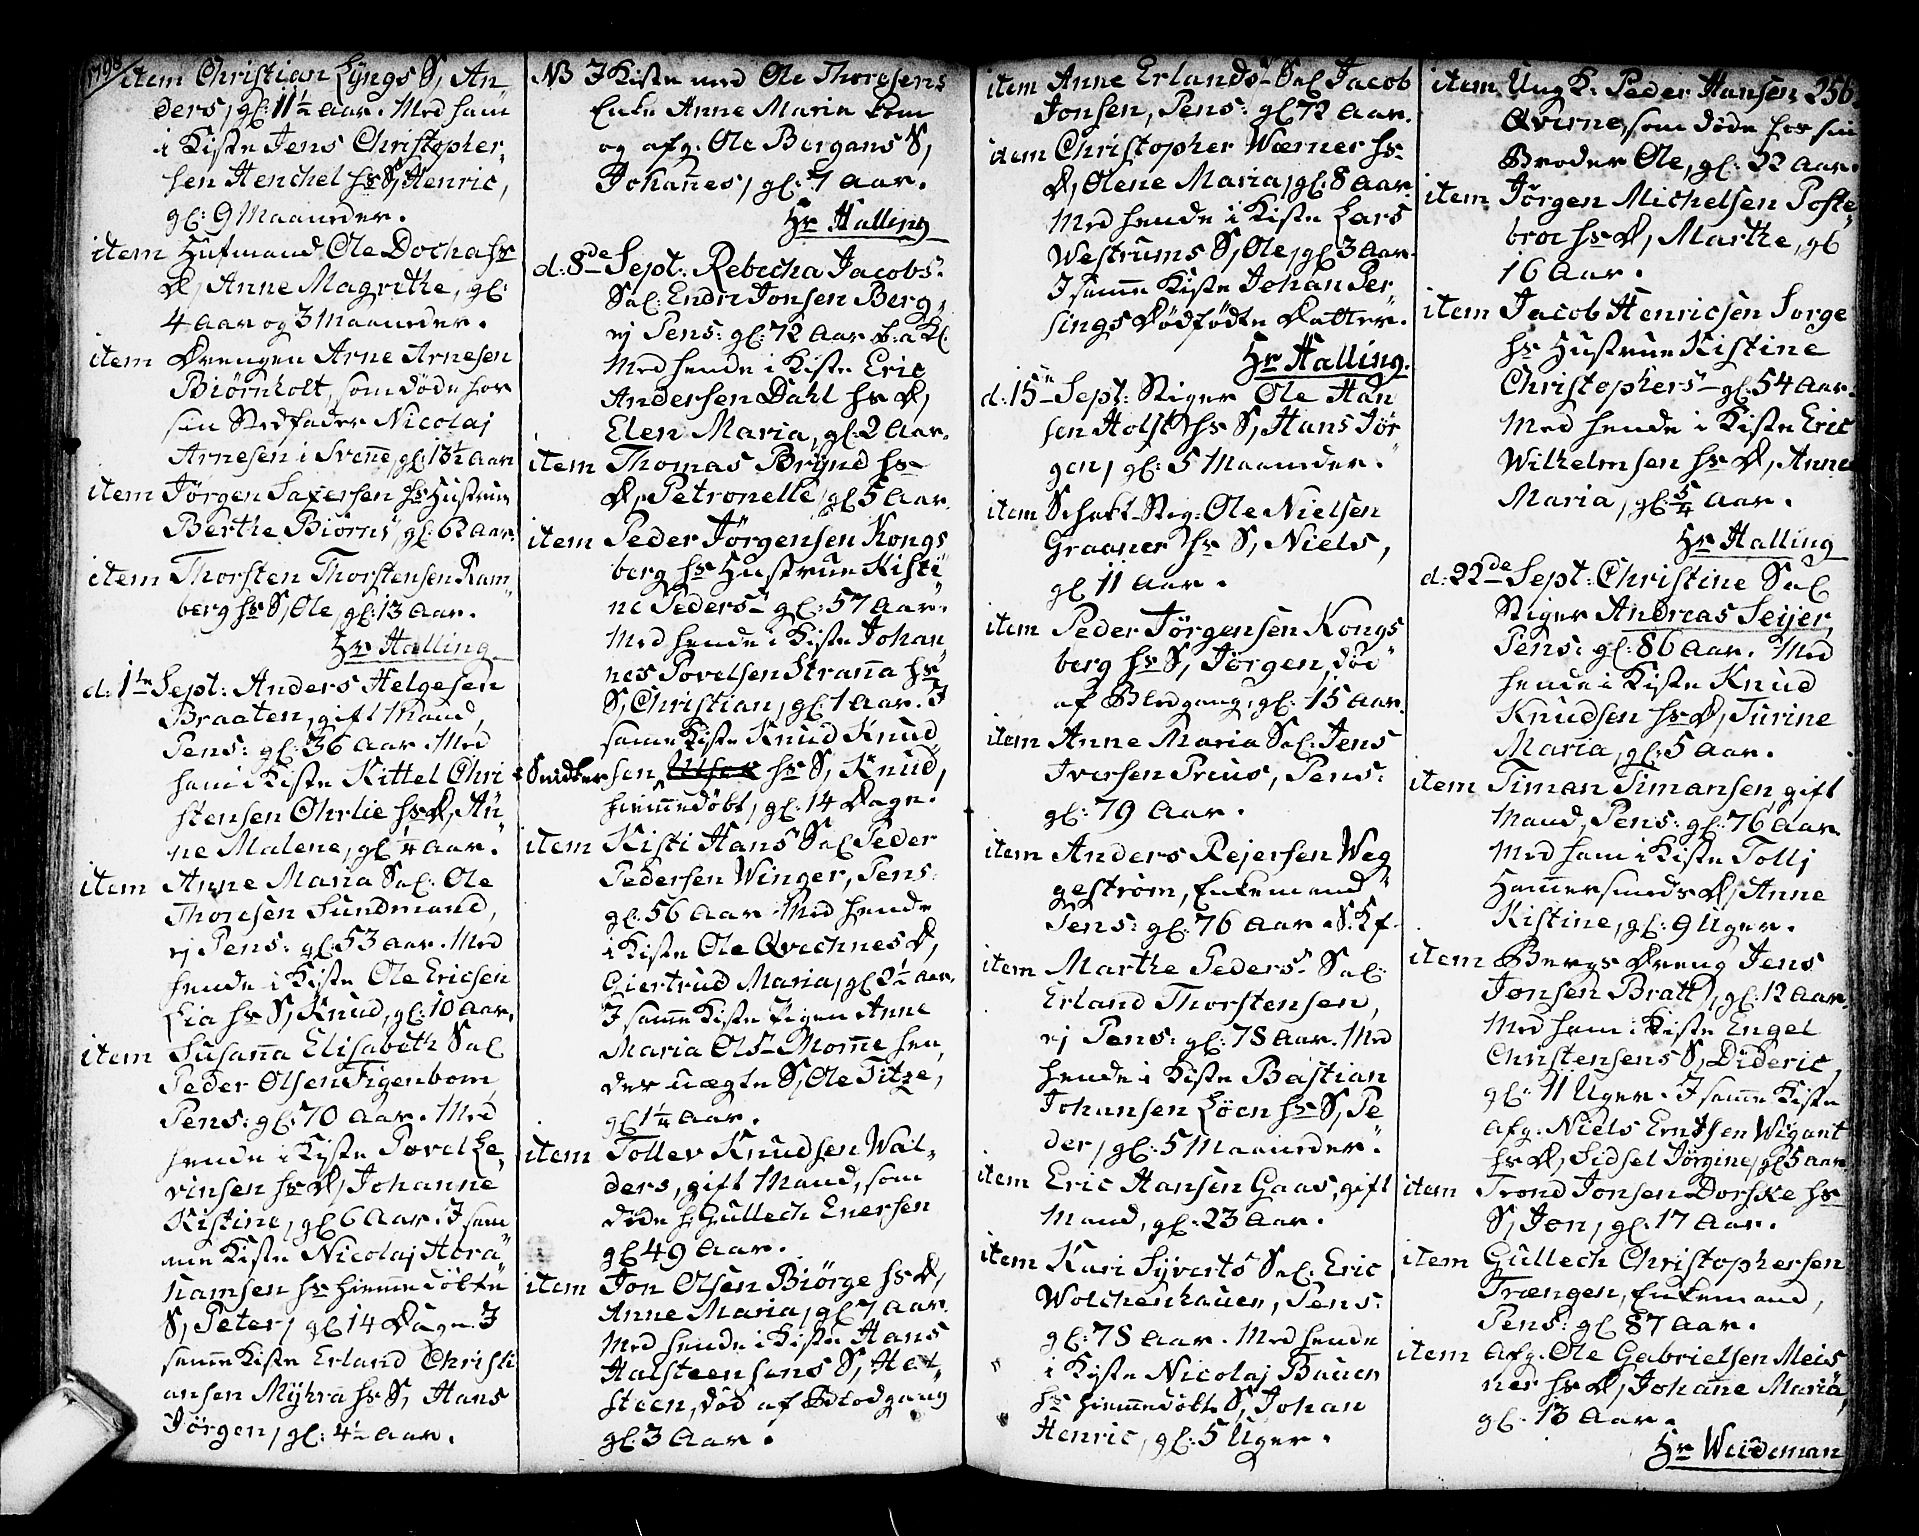 1798
item Christian Lyngs S, An-
ders, gl: 11½ Aar. Med ham
i Kiste Jens Christopher-
sen Henchel hs S, Henric,
gl: 9 Maaneder.
item Hufmand Ole Dochas hs
D, Anne Magrethe, gl:
4 Aar og 3 Maaneder.
item Drengen Arne Arnesen
Biørnholt, som døde hos
sin Stedfader Nicolaj
Arnesen i Svene, gl: 13½ Aar
item Jørgen Saxersen hs Hustrue
Berthe Biørns, gl: 62 Aar.
item Thorsten Thorstensen Ram-
berg hs S, Ole, gl: 13 Aar.
Hr Halling
d: 1te Sept: Anders Helgesen
Braaten, gift Mand,
Pens: gl: 36 Aar. Med
ham i Kiste Kittel Chri-
stensen Ohrlie hs D, An-
ne Malene, gl: ¼ Aar.
item Anne Maria Sal: Ole
Thoresen Sundmand,
ej Pens: gl: 53 Aar. Med
hende i Kiste Ole Ericsen
Lia hs S, Knud, gl: 10 Aar.
item Susanna Elisabeth Sal
Peder Olsen Figenbom,
Pens: gl: 70 Aar. Med
hende i Kiste Povel Le-
vinsen hs D, Johanne
Kistine, gl: 6 Aar. I sam-
me Kiste Nicolaj Abra-
hamsen hs hiemmedøbte
S, Peter, gl 14 Dage. I
samme Kiste Erland Christi-
ansen Myhra hs S, Hans
Jørgen, gl: 4½ Aar.
NB I Kiste med Ole Thoresens
Enke Anne Maria kom
og afg: Ole Bergans S,
Johannes, gl: 7 Aar.
Hr Halling
d: 8de Sept: Rebecha Jacobs-
Sal: Endre Jonsen Berg,
ej Pens: gl: 72 Aar
Med hende i Kiste Eric
Andersen Dahl hs D,
Elen Maria, gl: 2 Aar.
item Thomas Brynd hs
D, Petronelle, gl 5 Aar.
item Peder Jørgensen Kongs-
berg hs Hustrue Kisti-
ne Peders- gl: 57 Aar.
Med hende i Kiste Johan-
nes Povelsen Stranna hs
S, Christian, gl: 1 Aar. I
samme Kiste Knud Knud-
Snidker sen, hs S, Knud,
hiemmedøbt, gl: 14 Dage.
item Kisti Hans Sal Peder
Pedersen Winger, Pens:
gl: 56 Aar. Med hende
i Kiste Ole Qvechnes D,
Giertrud Maria, gl 2½ Aar.
I samme Kiste Pigen Anne
Maria Ols- Momme hen-
des uægte S, Ole Titze,
gl 1¼ Aar.
item Tollev Knudsen Wal-
ders, gift Mand, som
døde h: Gullech Enersen
gl 49 Aar.
item Jon Olsen Biørge hs D,
Anne Maria, gl 7 Aar.
Med hende i Kiste Hans
Halsteensens S, Hal-
steen, død af Blodgang
gl: 3 Aar.
item Anne Erlands- Sal Jacob
Jonsen, Pens: gl 72 Aar.
item Christopher Wærner hs
D, Olene Maria, gl: 8 Aar
Med hende i Kiste Lars
Westrums S, Ole, gl 3 Aar.
I samme Kiste Johan Per-
sings Dødfødte Datter.
Hr Halling.
d: 15de Sept: Stiger Ole Han-
sen Holst hs S, Hans Jør-
gen, gl: 5 Maaneder.
item Schakt-Stig: Ole Nielsen
Graaner hs S, Niels,
gl 11 Aar.
item Peder Jørgensen Kongs-
berg hs S, Jørgen, død
af Blodgang, gl: 15 Aar.
item Anne Maria Sal: Jens
Iversen Preus, Pens:
gl: 79 Aar.
item Anders Rejersen Weg-
gestrøm, Enkemand
Pens: gl: 76 Aar S. Kf.
item Marthe Peders- Sal:
Erland Thorstensen,
ej Pens: gl: 78 Aar. Med
hende i Kiste Bastian
Johansen Løen hs S, Pe-
der, gl: 5 Maaneder.
item Eric Hansen Gaas, gift
Mand, gl: 23 Aar.
item Kari Syverts- Sal: Eric
Wolchenhauer, Pens:
gl: 78 Aar. Med hende
i Kiste Nicolaj Bauer
hs hiemmedøbte S, Johan
Henric, gl: 5 Uger.
256.
item Ung K. Peder Hansen
Qverne, som døde hos sin
Broder Ole, gl: 22 Aar.
item Jørgen Michelsen Poste-
broe hs D, Marthe, gl
16 Aar.
item Jacob Henricsen Sorge
hs Hustrue Kistine
Christophers- gl: 54 Aar.
Med hende i Kiste Eric
Wilhelmsen hs D, Anne
Maria, gl: 5/4 Aar.
Hr Halling
d: 22de Sept: Christine Sal
Stiger Andreas Seijer
Pens: gl: 86 Aar. Med
hende i Kiste Knud
Knudsen hs D, Turine
Maria, gl: 5 Aar.
item Timan Timansen gift
Mand, Pens: gl: 76 Aar.
Med ham i Kiste Tollj
Hammersmeds D, Anne
Kistine, gl: 9 Uger.
item Bergs Dreng Jens
Jonsen Bratt, gl: 12 Aar.
Med ham i Kiste Engel
Christensens S, Dideric,
gl: 11 Uger. I samme Kiste
afg: Niels Erntsen Wigant
hs D, Sidsel Jørgine, gl 5 Aar
item Trond Jonsen Dorske hs
S, Jon, gl: 17 Aar.
item Gullech Christophersen
Trængen, Enkemand,
Pens: gl 87 Aar.
item Afg: Ole Gabrielsen Meis-
ner hs D, Johanne Maria,
gl: 13 Aar.
Hr Weideman